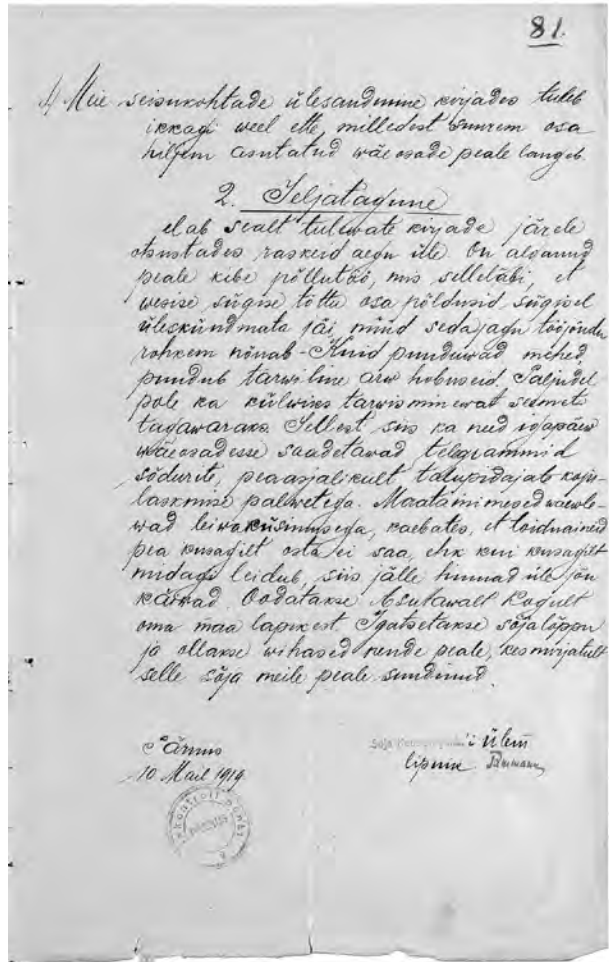 81.
d) Meie seisukohtade ülesandmine kirjades tuleb
ikkagi weel ette, milledest suurem osa
hiljem asutatud wäeosade peale langeb.
2. Seljatagune
elab sealt tulewate kirjade järele
otsustades raskeid aegu üle. On alganud
peale kibe põllutöö, mis selletõbi, et
wesise sügise tõttu osa põldusid sügisel
üleskündmata jäi, nüüd seda jagu tööjõudu
rohkem nõuab - Kuid puuduwad mehed,
puudub tarwiline arw hobuseid. Paljudel
pole ka külwiks tarwisminewat seemet
tagawaraks. Sellest siis ka need igapäew
wäeosadesse saadetawad telegrammid
sõdurite, peaasjalikult talupidajate koju-
laskmise palwetega. Maata inimesed waewle-
wad leiwaküsimusega, kaebates, et toiduaineid
pea kusagilt osta ei saa, ehk kui kusagilt
midagi leidub, siis jälle hinnad üle jõu
käiwad. Oodatakse Asutawalt Kogult
oma maa lapikest. Igatsetakse sõja lõppu
ja ollakse wihased nende peale, kes nurjatult
selle sõja meile peale sundinud.
Pärnus
10. Mail 1919
Sõja ülem
lipnik